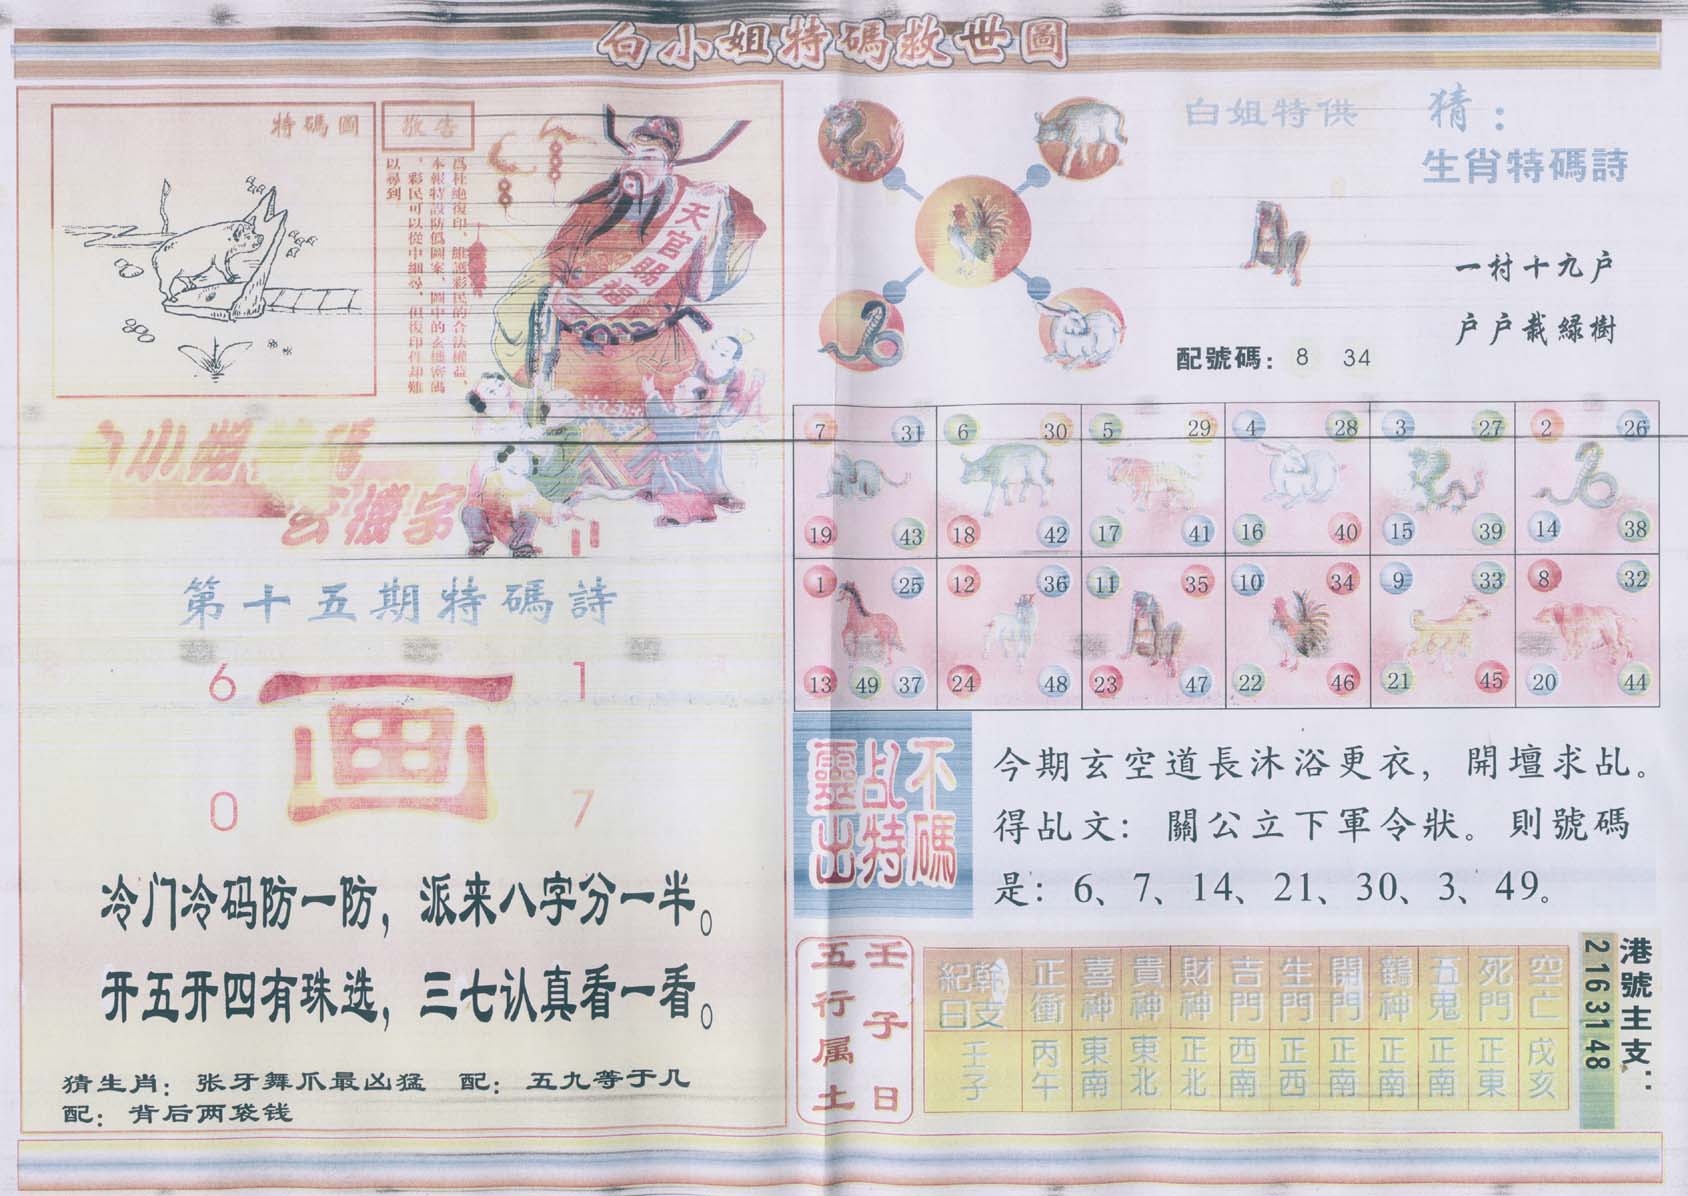 白小姐特碼救世圖
特碼圖
敬告
爲杜絶復印，維護彩民的合法權益，
本報特設防僞圖案，圖中的玄機密碼
，彩民可以從中細尋，但復印件却難
以尋到
天官賜福
白小姐特碼
玄機字
第十五期特碼詩
6 1
画
0 7
冷门冷码防一防，派来八字分一半。
开五开四有珠选，三七认真看一看。
猜生肖：张牙舞爪最凶猛 配：五九等于几
配：背后两袋钱
白姐特供
猜：
生肖特碼詩
一村十九户
户户栽緑樹
配號碼：8 34
7 31 6 30 5 29 4 28 3 27 2 26
19 43 18 42 17 41 16 40 15 39 14 38
1 25 12 36 11 35 10 34 9 33 8 32
13 49 37 24 48 23 47 22 46 21 45 20 44
不碼
乩特
靈出
今期玄空道長沐浴更衣，開壇求乩。
得乩文：關公立下軍令狀。則號碼
是：6、7、14、21、30、3、49。
壬子日
五行属土
紀日幹支 正衝 喜神 貴神 財神 吉門 生門 開門 鶴神 五鬼 死門 空亡
壬子 丙午 東南 東北 正北 西南 正西 正南 正南 正南 正東 戌亥
港號主支：
2163148